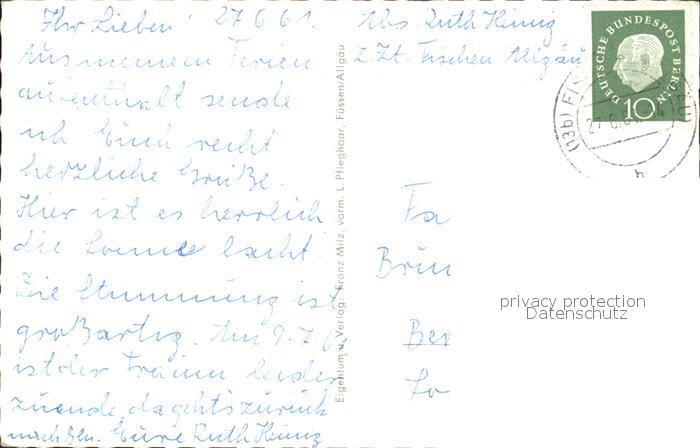 Ihr Lieben! 27.6.61.
Aus meinem Ferien
aufenthalt sende
ich Euch recht
herzliche Grüße.
Hier ist es herrlich
die Sonne lacht.
Die Stimmung ist
großartig. Am 9.7.6
ist der Traum leider
zuende, da geht's zurück
nach Bln. Eure Ruth Heinig
Eigentum u. Verlag: Franz Milz, vorm. L. Pfleghaar, Füssen/Allgäu
Abs. Ruth Heinig
z. Zt. Fischen Allgäu
DEUTSCHE BUNDESPOST BERLIN
10
(13b) FIS
27.6.61
Fa
Brün
Ber
privacy protection
Datenschutz